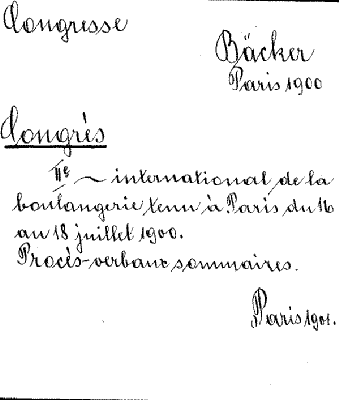 Congresse
Bäcker
Paris 1900
Congrès
IIe ~ international de la
boulangerie tenu à Paris du 16
au 18 juillet 1900.
Procès-verbaux sommaires.
Paris 1901.